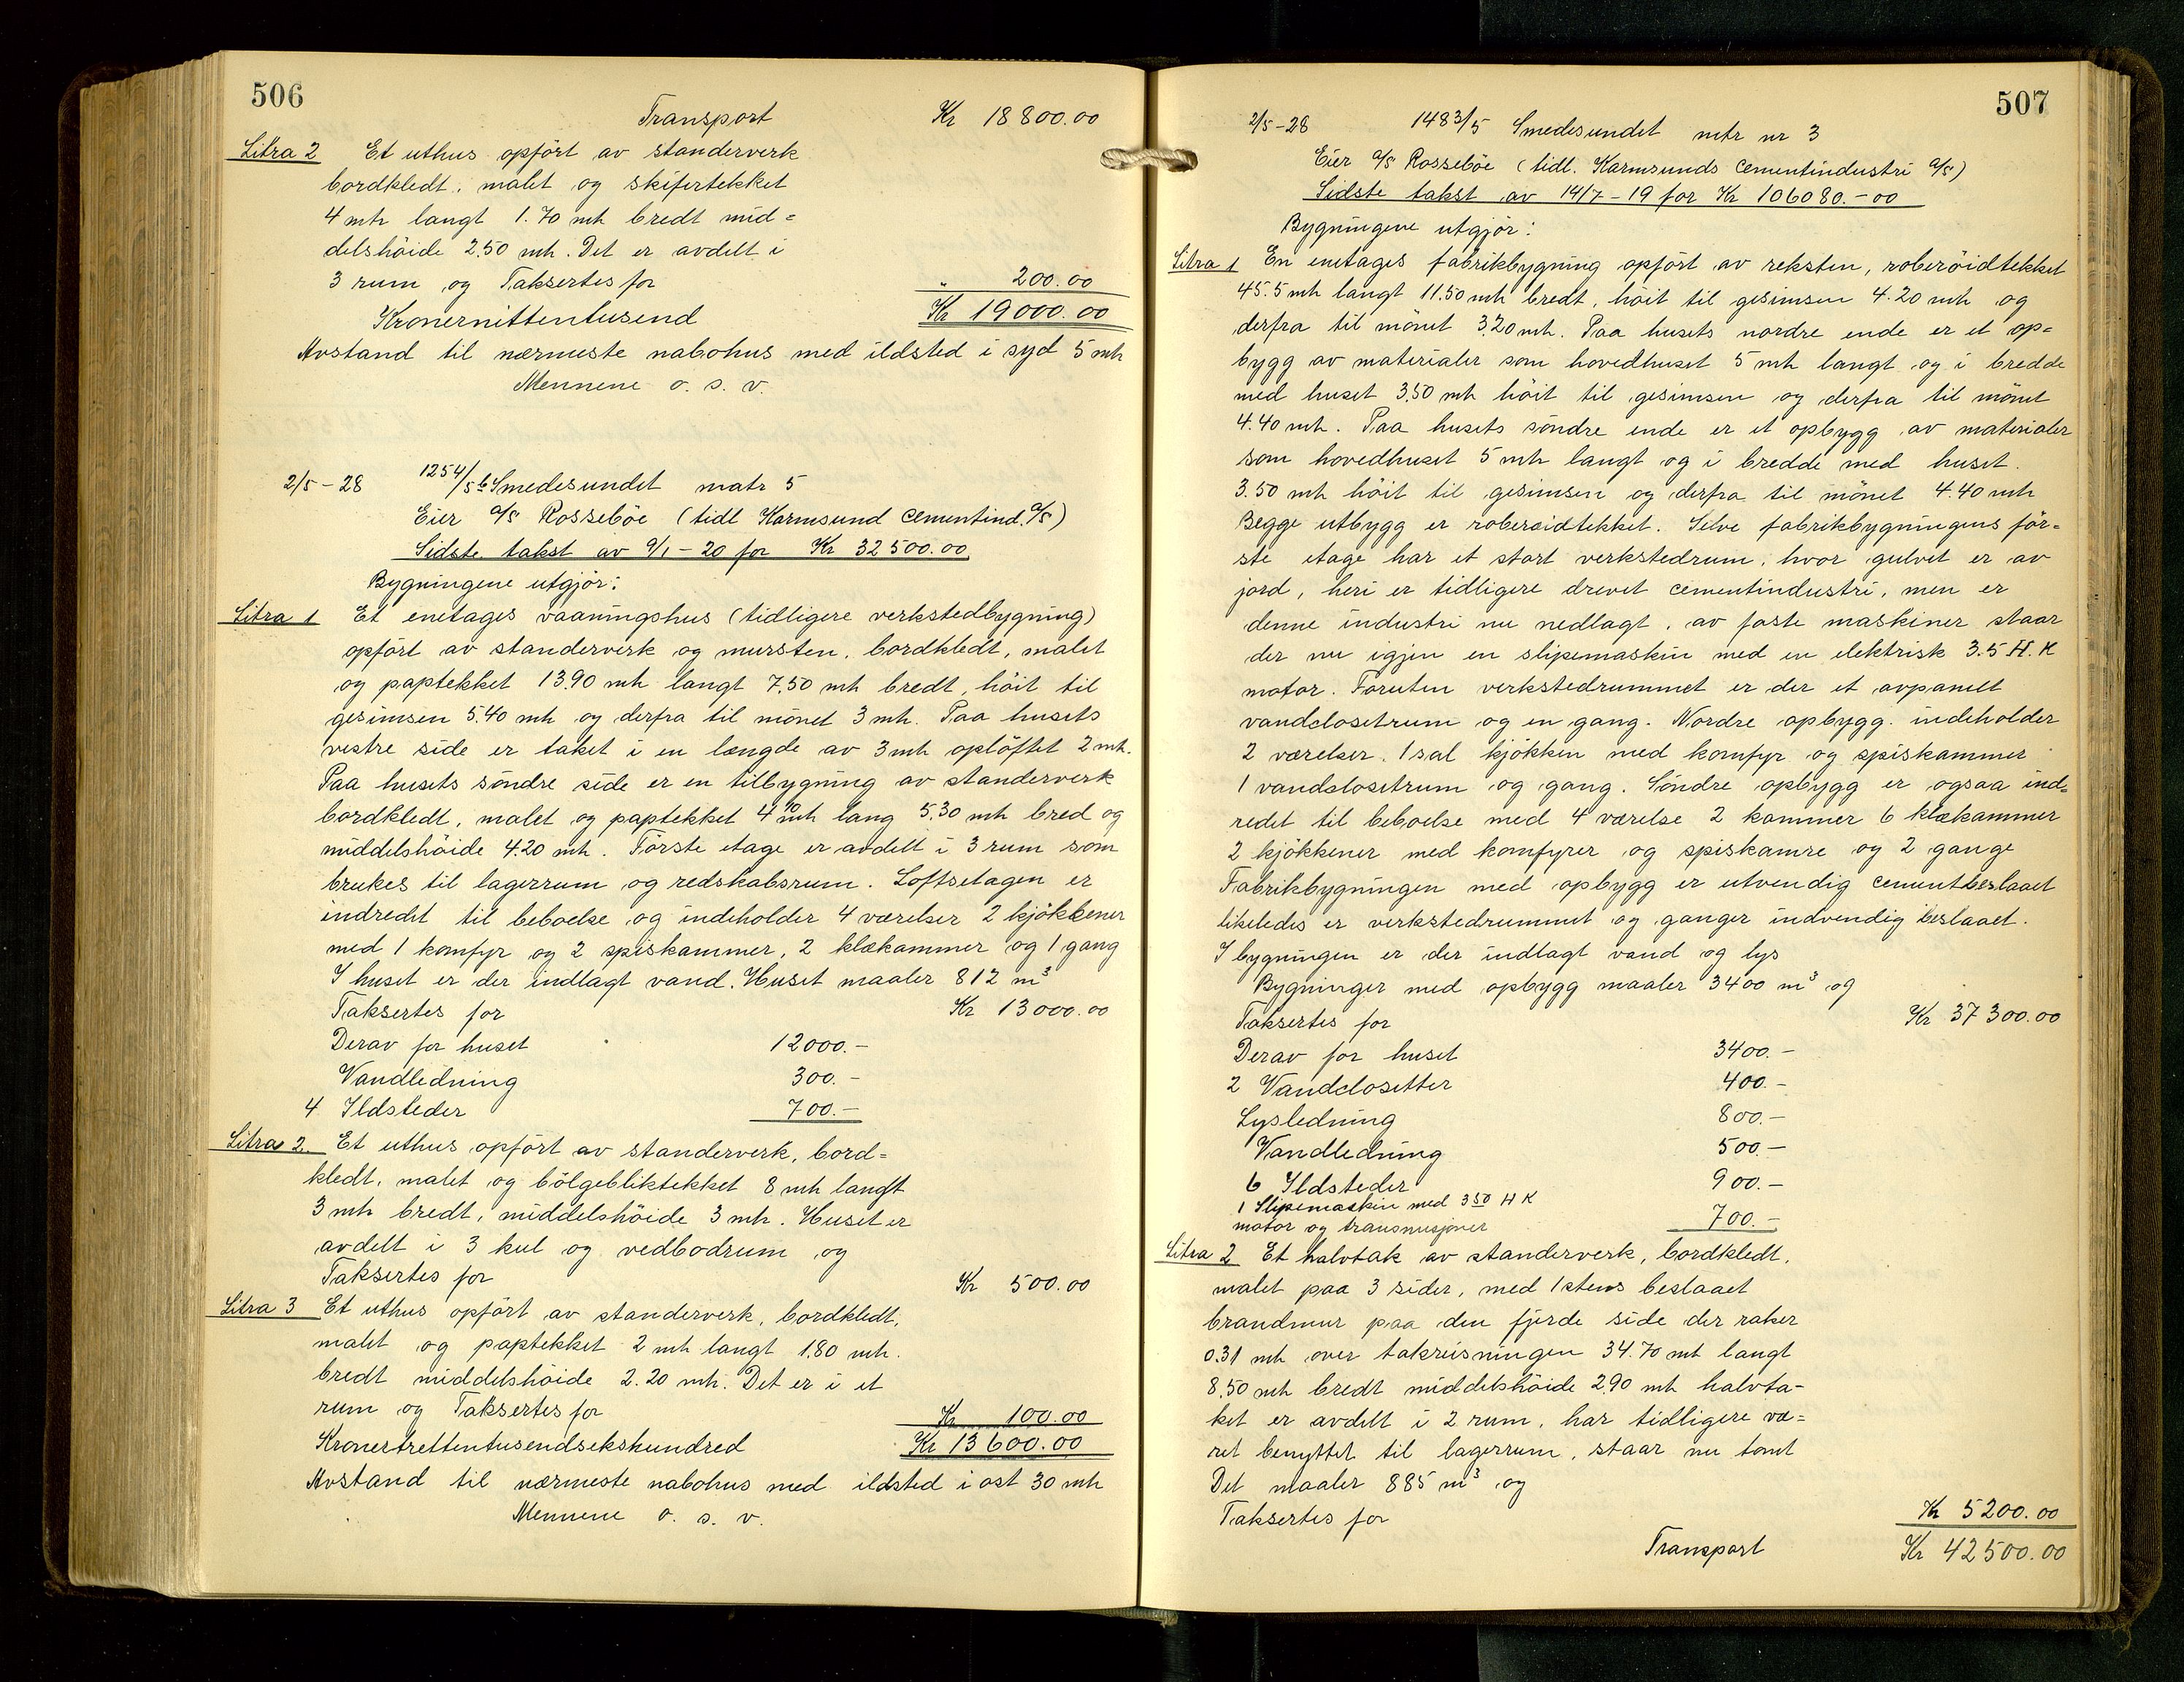 506
Transport Kr 18800.00
Litra 2 Et uthus opført av standerverk
bordkledt, malet og skifertekket
4 mtr langt 1.70 mtr bredt mid=
delshöide 2.50 mtr. Det er avdelt i
3 rum og Taksertes for " 200.00
Kronernittentusend Kr 19000.00
Avstand til nærmeste nabohus med ildsted i syd 5 mtr
Mennene o. s. v.
2/5-28 1254/5b Smedesundet matr 5
Eier a/s Rosseböe (tidl Karmsund Cementind. a/s)
Sidste takst av 9/1-20 for Kr 32500.00
Bygningene utgjör:
Litra 1 Et enetages vaaningshus (tidligere verkstedbygning)
opfört av standerverk og mursten, bordkledt, malet
og paptekket 13.90 mtr langt 7.50 mtr bredt, höit til
gesimsen 5.40 mtr og derfra til mönet 3 mtr. Paa husets
vestre side er taket i en længde av 3 mtr oplöftet 2 mtr.
Paa husets söndre side er en tilbygning av standerverk
bordkledt, malet og paptekket 4.10 mtr lang 5.30 mtr bred og
middelshöide 4.20 mtr. Förste etage er avdelt i 3 rum som
brukes til lagerrum og redskabsrum. Loftsetagen er
indredet til beboelse og indeholder 4 værelser 2 kjökkener
med 1 komfyr og 2 spiskammer, 2 klækammer og 1 gang
I huset er der indlagt vand. Huset maaler 812 m³
Taksertes for Kr 13000.00
Derav for huset 12000.-
Vandledning 300.-
4 Ildsteder 700.-
Litra 2. Et uthus opfört av standerverk, bord=
kledt, malet og bölgebliktekket 8 mtr langt
3 mtr bredt, middelshöide 3 mtr. Huset er
avdelt i 3 kul og vedbodrum og
Taksertes for Kr 500.00
Litra 3 Et uthus opfört av standerverk, bordkledt,
malet og paptekket 2 mtr langt 1.80 mtr.
bredt middelshöide 2.20 mtr. Det er i et
rum og Taksertes for Kr 100.00
Kronertrettentusendsekshundred Kr 13600.00
Avstand til nærmeste nabohus med ildsted i ost 30 mtr
Mennene o. s. v.
507
2/5-28 1483/5 Smedesundet mtr nr 3
Eier a/s Rosseböe (tidl. Karmsunds Cementindustri a/s)
Sidste takst av 14/7-19 for Kr 106080.-00
Bygningene utgjör:
Litra 1 En enetages fabrikbygning opfört av reksten, roberöidtekket
45.5 mtr langt 11.50 mtr bredt, höit til gesimsen 4.20 mtr og
derfra til mönet 3.20 mtr. Paa husets nordre ende er et op=
bygg av materialer som hovedhuset 5 mtr langt og i bredde
med huset 3.50 mtr höit til gesimsen og derfra til mönet
4.40 mtr. Paa husets söndre ende er et opbygg av materialer
som hovedhuset 5 mtr langt og i bredde med huset.
3.50 mtr höit til gesimsen og derfra til mönet 4.40 mtr
Begge utbygg er roberoidtekket. Selve fabrikbygningens för=
ste etage har et stort verkstedrum, hvor gulvet er av
jord, heri er tidligere drevet cementindustri, men er
denne industri nu nedlagt, av faste maskiner staar
der nu igjen en slipemaskin med en elektrisk 3.5 H.K
motor. Foruten verkstedrummet er der et avpanelt
vandclosetrum og en gang. Nordre opbygg. indeholder
2 værelser, 1 sal kjökken med komfyr og spiskammer
1 vandclosetrum og gang. Söndre opbygg er ogsaa ind=
redet til beboelse med 4 værelse 2 kammer 6 klækammer
2 kjökkener med komfyrer og spiskamre og 2 gange
Fabrikbygningen med opbygg er utvendig cementbeslaaet
likeledes er verkstedrummet og ganger indvendig beslaaet.
I bygningen er der indlagt vand og lys
Bygninger med opbygg maaler 3400 m³ og
Taksertes for Kr 37300.00
Derav for huset 3400.-
2 Vandclosetter 400.-
Lysledning 800.-
Vandledning 500.-
6 Ildsteder 900.-
1 Slipemaskin med 3.50 H K
motor og transmisjoner 700.-
Litra 2 Et halvtak av standerverk, bordkledt,
malet paa 3 sider, med 1 stens beslaaet
brandmur paa den fjerde side der raker
0.31 mtr over takreisningen 34.70 mt langt
8.50 mtr bredt middelshöide 2.90 mtr halvta-
ket er avdelt i 2 rum, har tidligere væ=
ret benyttet til lagerrum, staar nu tomt
Det maaler 885 m³ og
Taksertes for Kr 5200.00
Transport Kr 42500.00